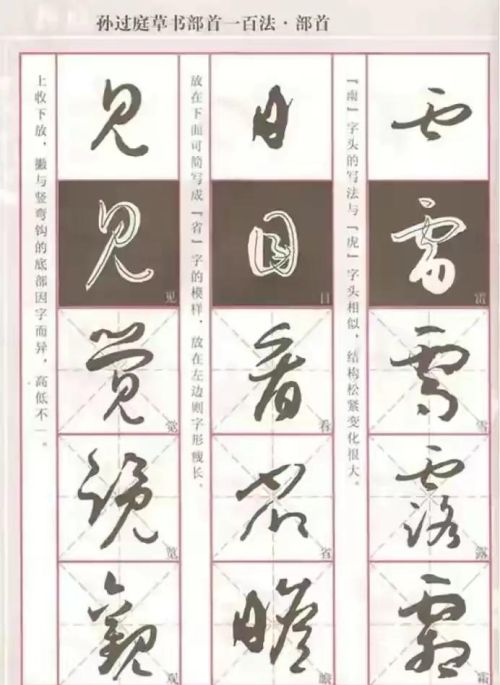 孙过庭草书部首一百法·部首
『雨』字头的写法与『虎』字头相似，结构松紧变化很大。
雷
雪
露
霜
放在下面可简写成『省』字的模样，放在左边则字形瘦长。
目
看
省
瞻
上收下放，撇与竖弯钩的底部因字而异，高低不一。
见
觉
览
观